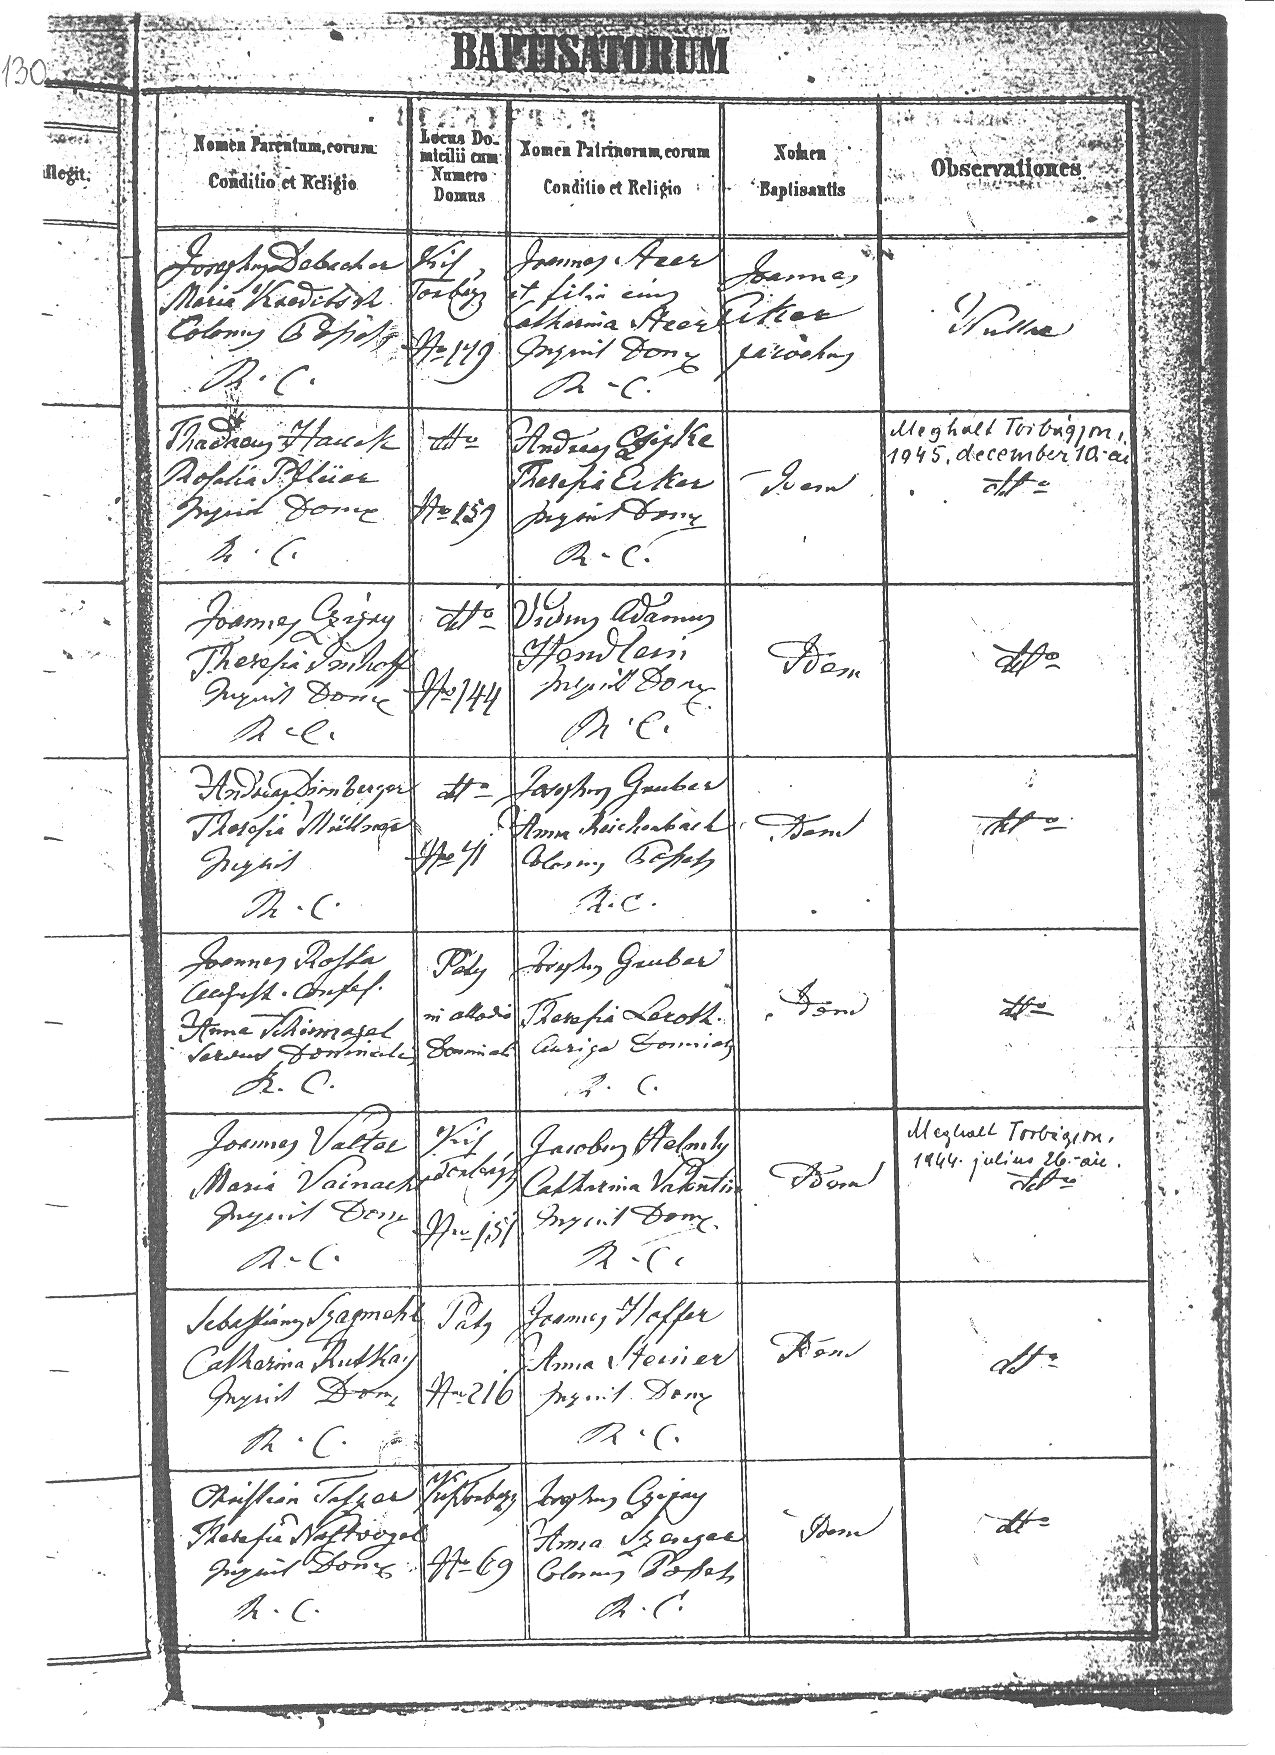 130
BAPTISATORUM
llegit.
Nomen Parentum, eorum
Conditio et Religio
Locus Do-
micilii cum
Numero
Domus
Nomen Patrinorum, eorum
Conditio et Religio
Nomen
Baptisantis
Observationes
Josephus
Maria
Colonus
R. C.
Kis
Torbágy
No 179
Joannes Steer
et filia eius
Catharina Steer
Inquil Domx
R. C.
Joannes
Eiker
parochus
Nullae
Thadaeus Hauck
Rosalia Pflüer
Inquil Domx
R. C.
dtto
No 159
Andreas
Theresia Ecker
Inquil Domx
R. C.
Idem
Meghalt Torbágyon,
1945. december 10.-én
dtto
Joannes Czigay
Theresia Imhoff
Inquil Domx
R. C.
dtto
No 144
Viduus Adamus
Hendlein
Inquil Domx
R. C.
Idem
dtto
Andreas Dirnberger
Theresia Müllner
Inquil
R. C.
dtto
No 71
Josephus Gruber
Anna Reichenbach
Colonus
R. C.
Idem
dtto
Joannes Roska
August. Confes.
Anna
Servus Dominalis
R. C.
Páty
in allodio
Dominali
Josephus Gruber
Theresia
Auriga Dominalis
R. C.
Idem
dtto
Joannes Valter
Maria
Inquil Domx
R. C.
Kis
Torbágy
No 151
Jacobus
Catharina Valentin
Inquil Domx
R. C.
Idem
Meghalt Torbágyon,
1944. julius 26.-án.
dtto
Sebastianus
Catharina Rutkay
Inquil Domx
R. C.
Páty
No 216
Joannes Hoffer
Anna Steiner
Inquil Domx
R. C.
Idem
dtto
Christian
Theresia
Inquil Domx
R. C.
Kis Torbágy
No 69
Josephus Czigay
Anna
Colonus
R. C.
Idem
dtto